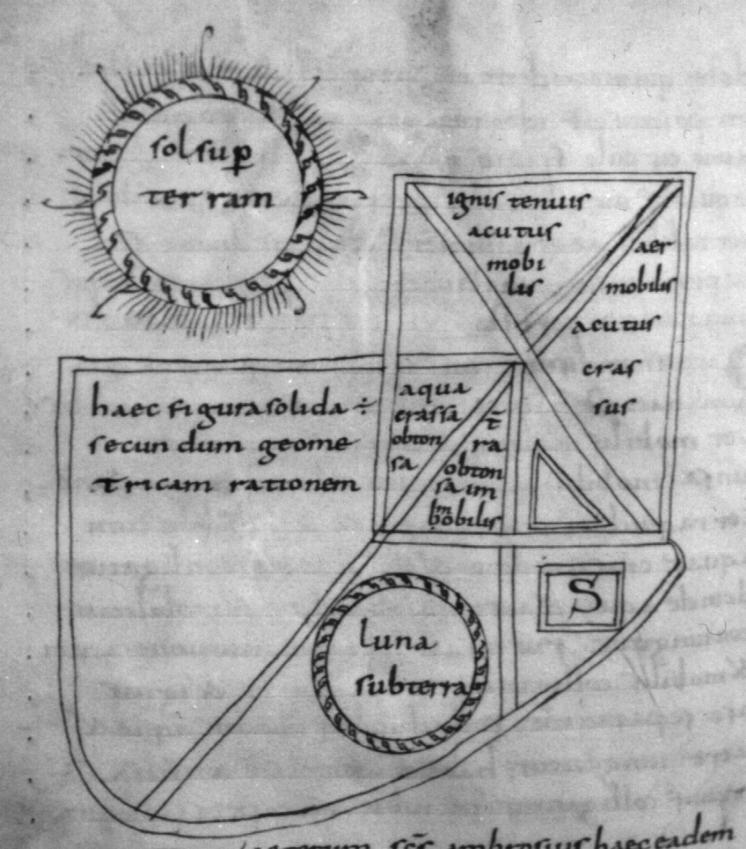 sol sup
ter ram
ignis tenuis
acutus
mobi
lis
aer
mobilis
acutus
cras
sus
haec figura solida ÷
secun dum geome
tricam rationem
aqua
crassa
obton
sa
t̄
ra
obton
sa im
mobilis
S
luna
subterra
scs̄ ambrosius haec eadem